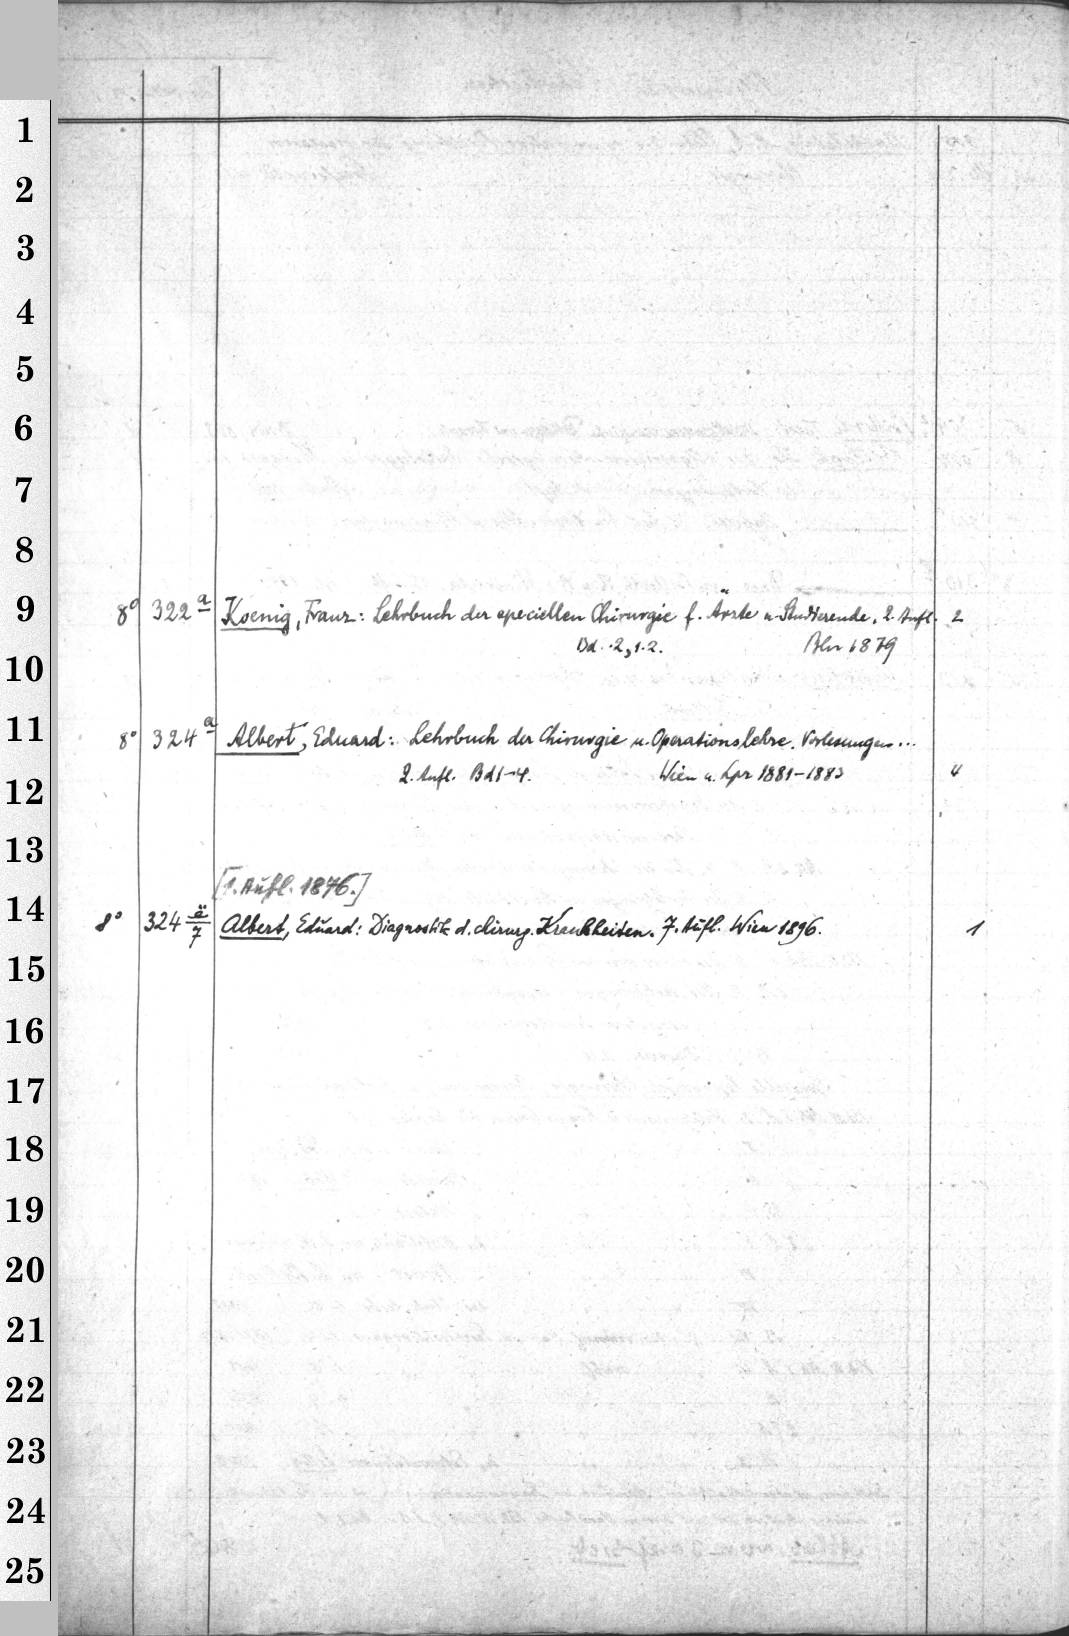 1
2
3
4
5
6
7
8
9
8° 322 a Koenig, Franz: Lehrbuch der speciellen Chirurgie f. Ärzte u. Studierende. 2. Aufl. 2
Bd. 2, 1.2. Bln 1879
10
11
8° 324 a Albert, Eduard: Lehrbuch der Chirurgie u. Operationslehre. Vorlesungen...
2. Aufl. Bd 1-4. Wien u. Lpz 1881-1883 4
12
13
[1. Aufl. 1876.]
14
8° 324 ä/7 Albert, Eduard: Diagnostik d. chirurg. Krankheiten. 7. Aufl. Wien 1896. 1
15
16
17
18
19
20
21
22
23
24
25